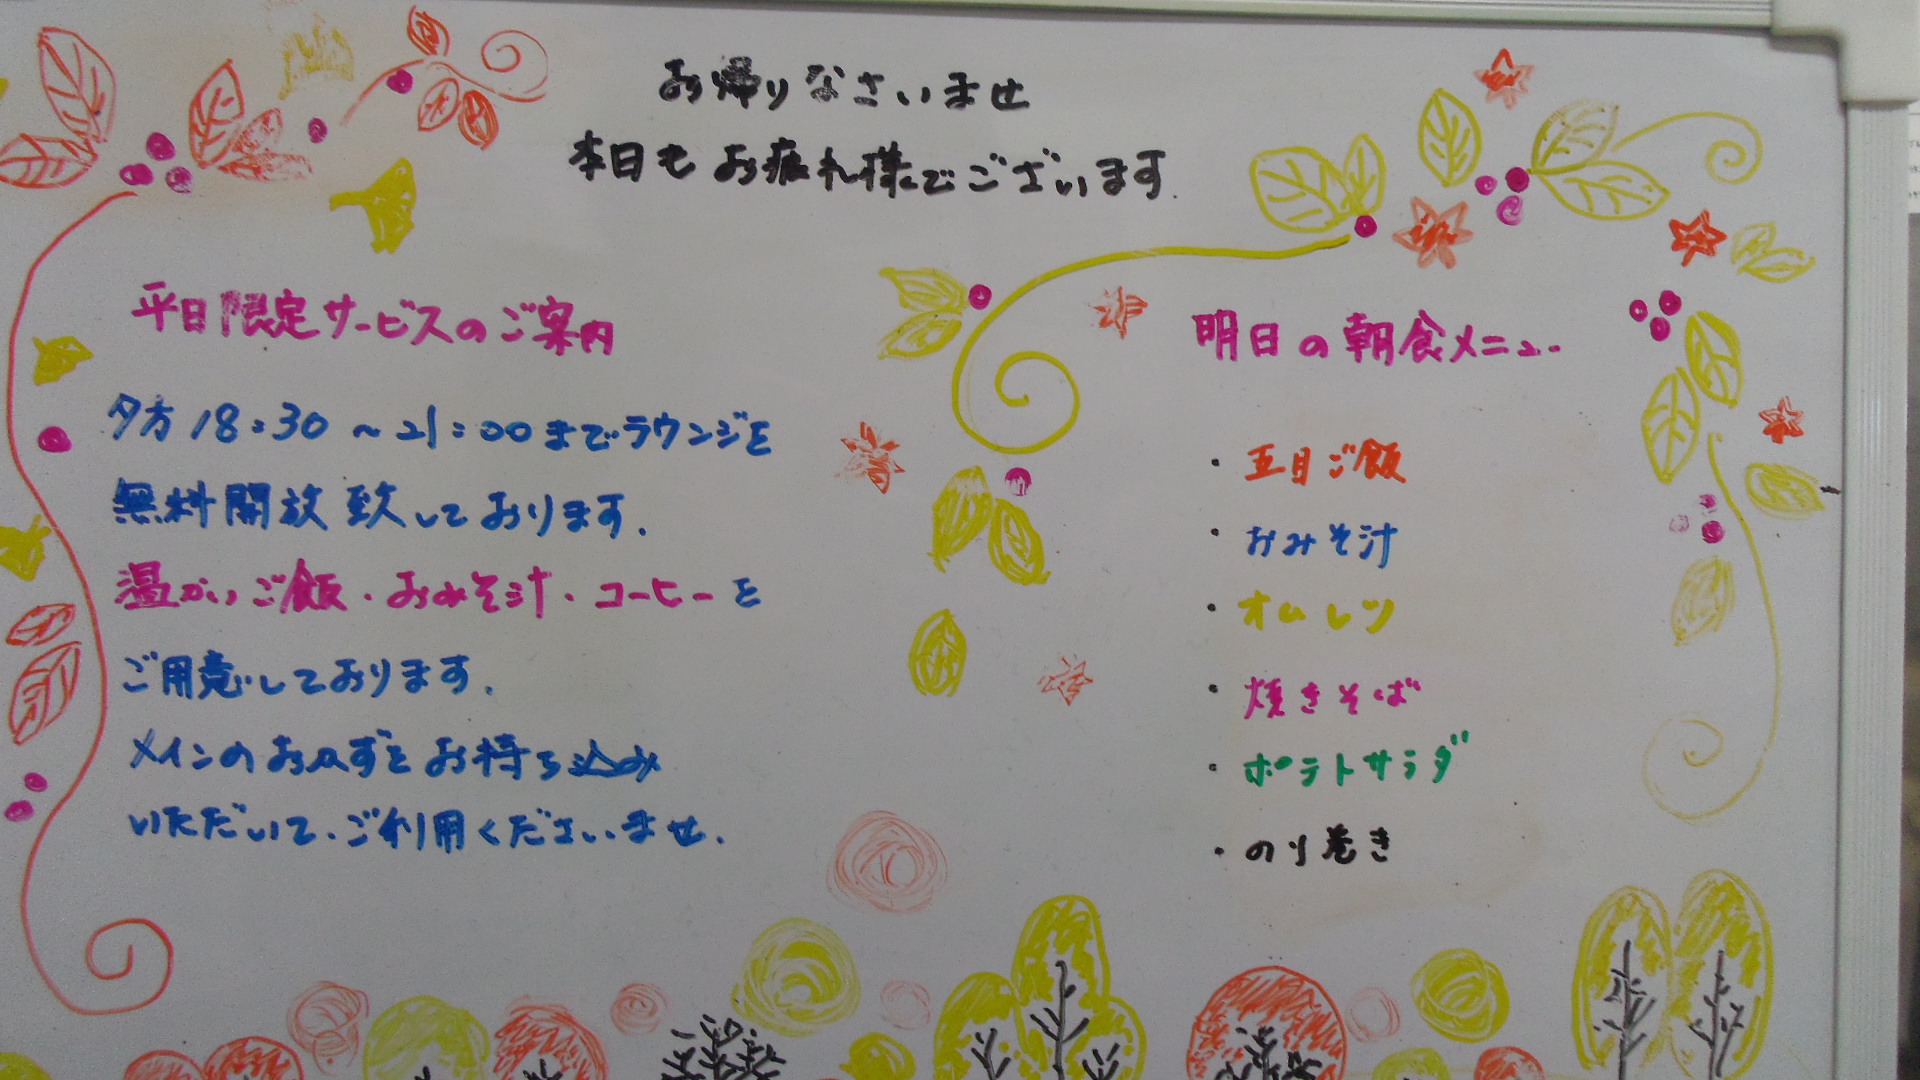 お帰りなさいませ
本日もお疲れ様でございます.
平日限定サービスのご案内
夕方18:30～21:00までラウンジを
無料開放致しております.
温かいご飯・おみそ汁・コーヒーを
ご用意しております.
メインのおかずをお持ち込み
いただいて、ご利用くださいませ.
明日の朝食メニュー
・五目ご飯
・おみそ汁
・オムレツ
・焼きそば
・ポテトサラダ
・のり巻き